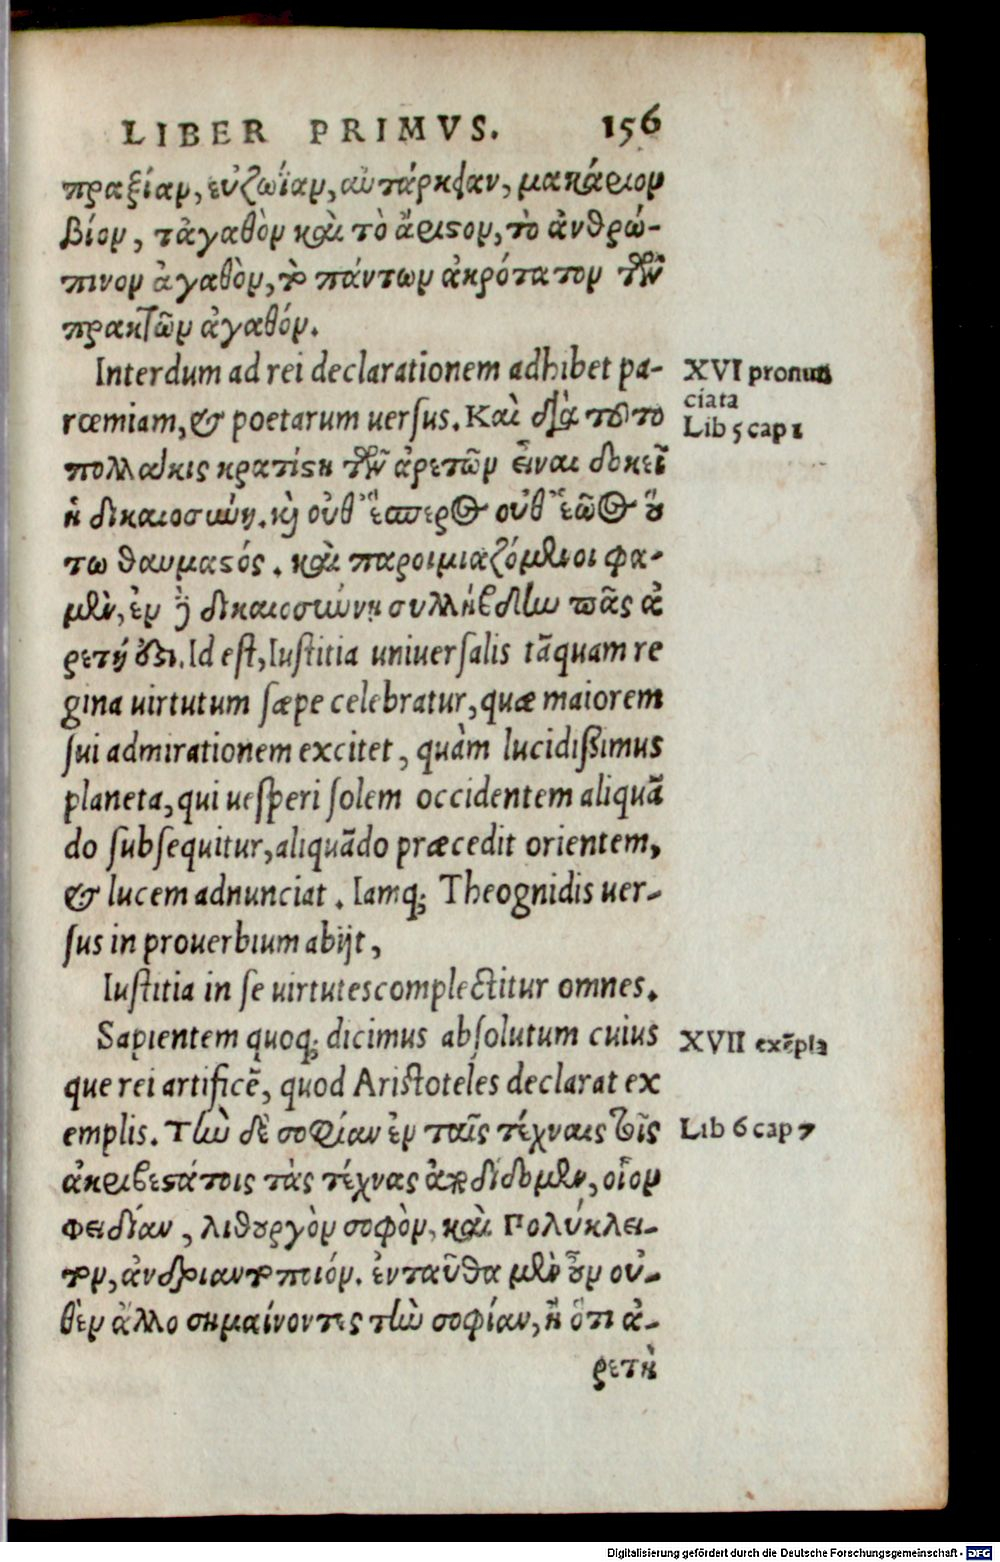 LIBER PRIMVS. 156
πραξίαν, εὐζωΐαν, αὐτάρκειαν, μακάριον
βίον, τἀγαθὸν καὶ τὸ ἄριστον, τὸ ἀνθρώ-
πινον ἀγαθὸν, τὸ πάντων ἀκρότατον τῶν
πρακτῶν ἀγαθόν.
Interdum ad rei declarationem adhibet pa-
rœmiam, & poetarum uersus. Καὶ διὰ τοῦτο
πολλάκις κρατίστη τῶν ἀρετῶν εἶναι δοκεῖ
ἡ δικαιοσύνη. καὶ οὐθ' ἕσπερος οὐθ' ἑῷος οὕ
τω θαυμαστός. καὶ παροιμιαζόμενοι φα-
μὲν, ἐν δὲ δικαιοσύνῃ συλλήβδην πᾶς ἀ
ρετή 'στι. Id est, Iustitia uniuersalis tāquam re
gina uirtutum sæpe celebratur, quæ maiorem
sui admirationem excitet, quàm lucidissimus
planeta, qui uesperi solem occidentem aliquā
do subsequitur, aliquādo præcedit orientem,
& lucem adnunciat. Iamq; Theognidis uer-
sus in prouerbium abijt,
Iustitia in se uirtutes complectitur omnes.
Sapientem quoq; dicimus absolutum cuius
que rei artificē, quod Aristoteles declarat ex
emplis. Τὴν δὲ σοφίαν ἐν ταῖς τέχναις τοῖς
ἀκριβεστάτοις τὰς τέχνας ἀποδίδομεν, οἷον
Φειδίαν, λιθουργὸν σοφὸν, καὶ Πολύκλει-
τον, ἀνδριαντοποιόν. ἐνταῦθα μὲν οὖν οὐ-
θὲν ἄλλο σημαίνοντες τὴν σοφίαν, ἢ ὅτι ἀ-
ρετὴ
XVI pronun
ciata
Lib 5 cap 1
XVII exēpla
Lib 6 cap 7
Digitalisierung gefördert durch die Deutsche Forschungsgemeinschaft - DFG